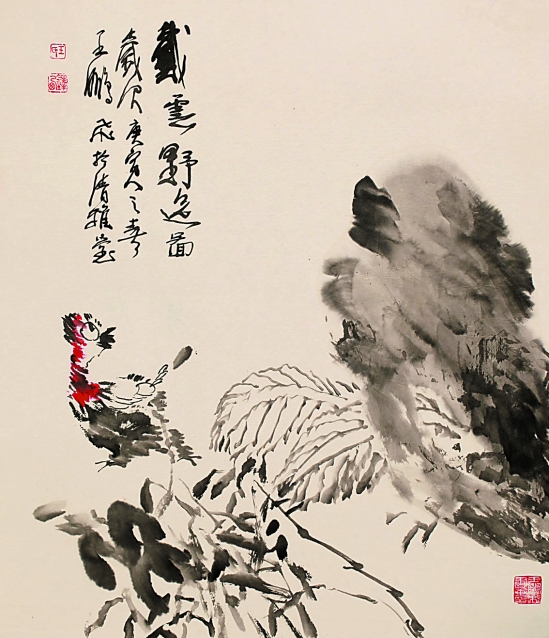 戴雲野逸圖
歲次庚寅之春
王鵬飛於清雅堂